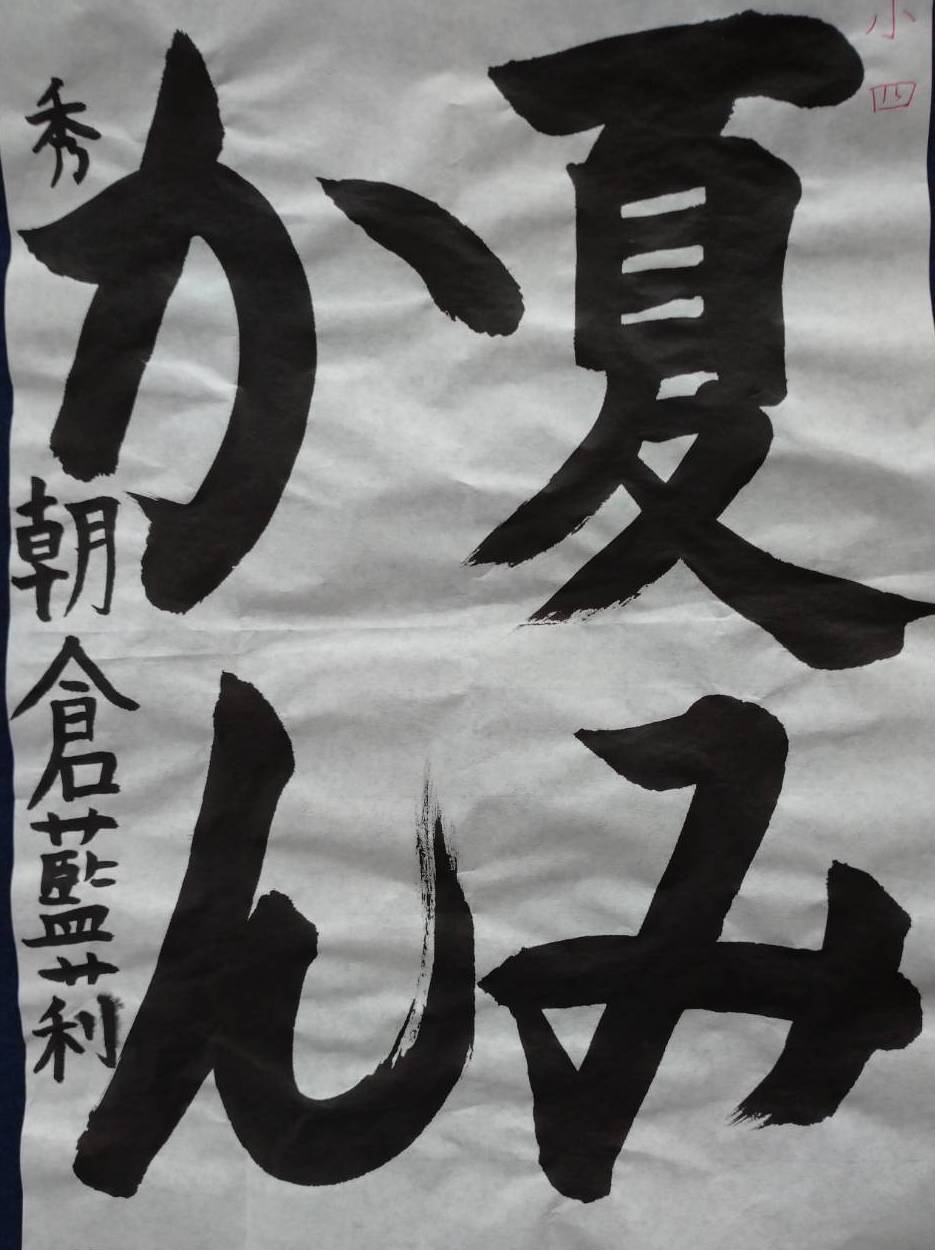 小四
夏み
かん
秀 朝倉藍莉